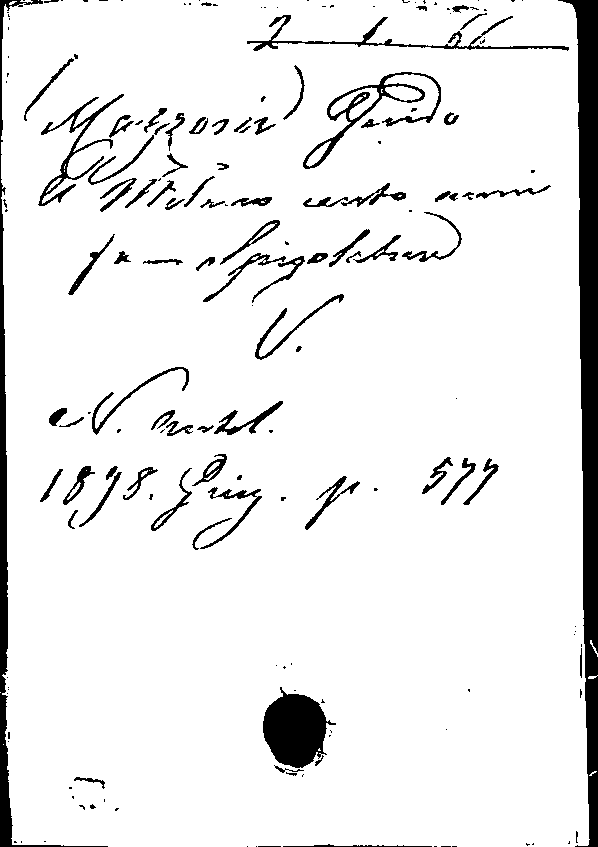 2 1. 66
Mazzoni Guido
A Milano cento anni
fa — Spigolature
V.
N. Antol.
1898. Giug. p. 577